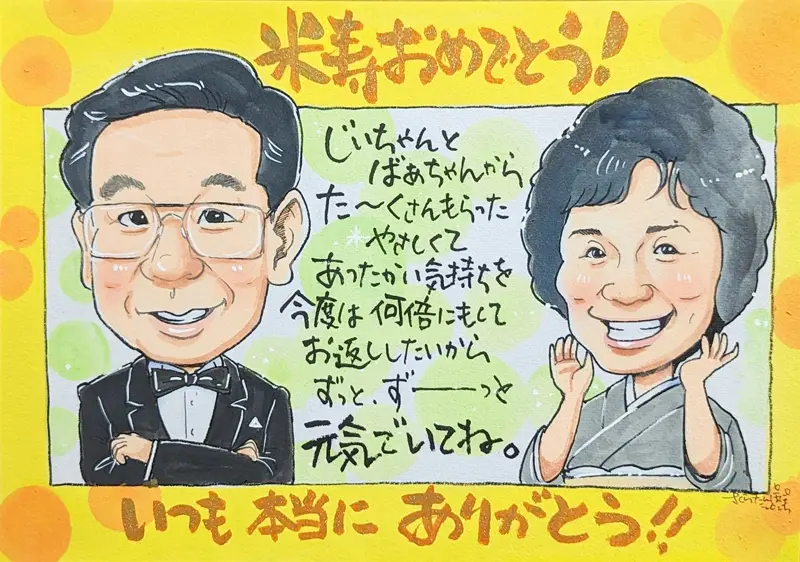 米寿おめでとう！
じいちゃんと
ばあちゃんから
た〜くさんもらった
やさしくて
あったかい気持ちを
今度は何倍にもして
お返ししたいから
ずっと、ず――っと
元気でいてね。
いつも本当にありがとう!!